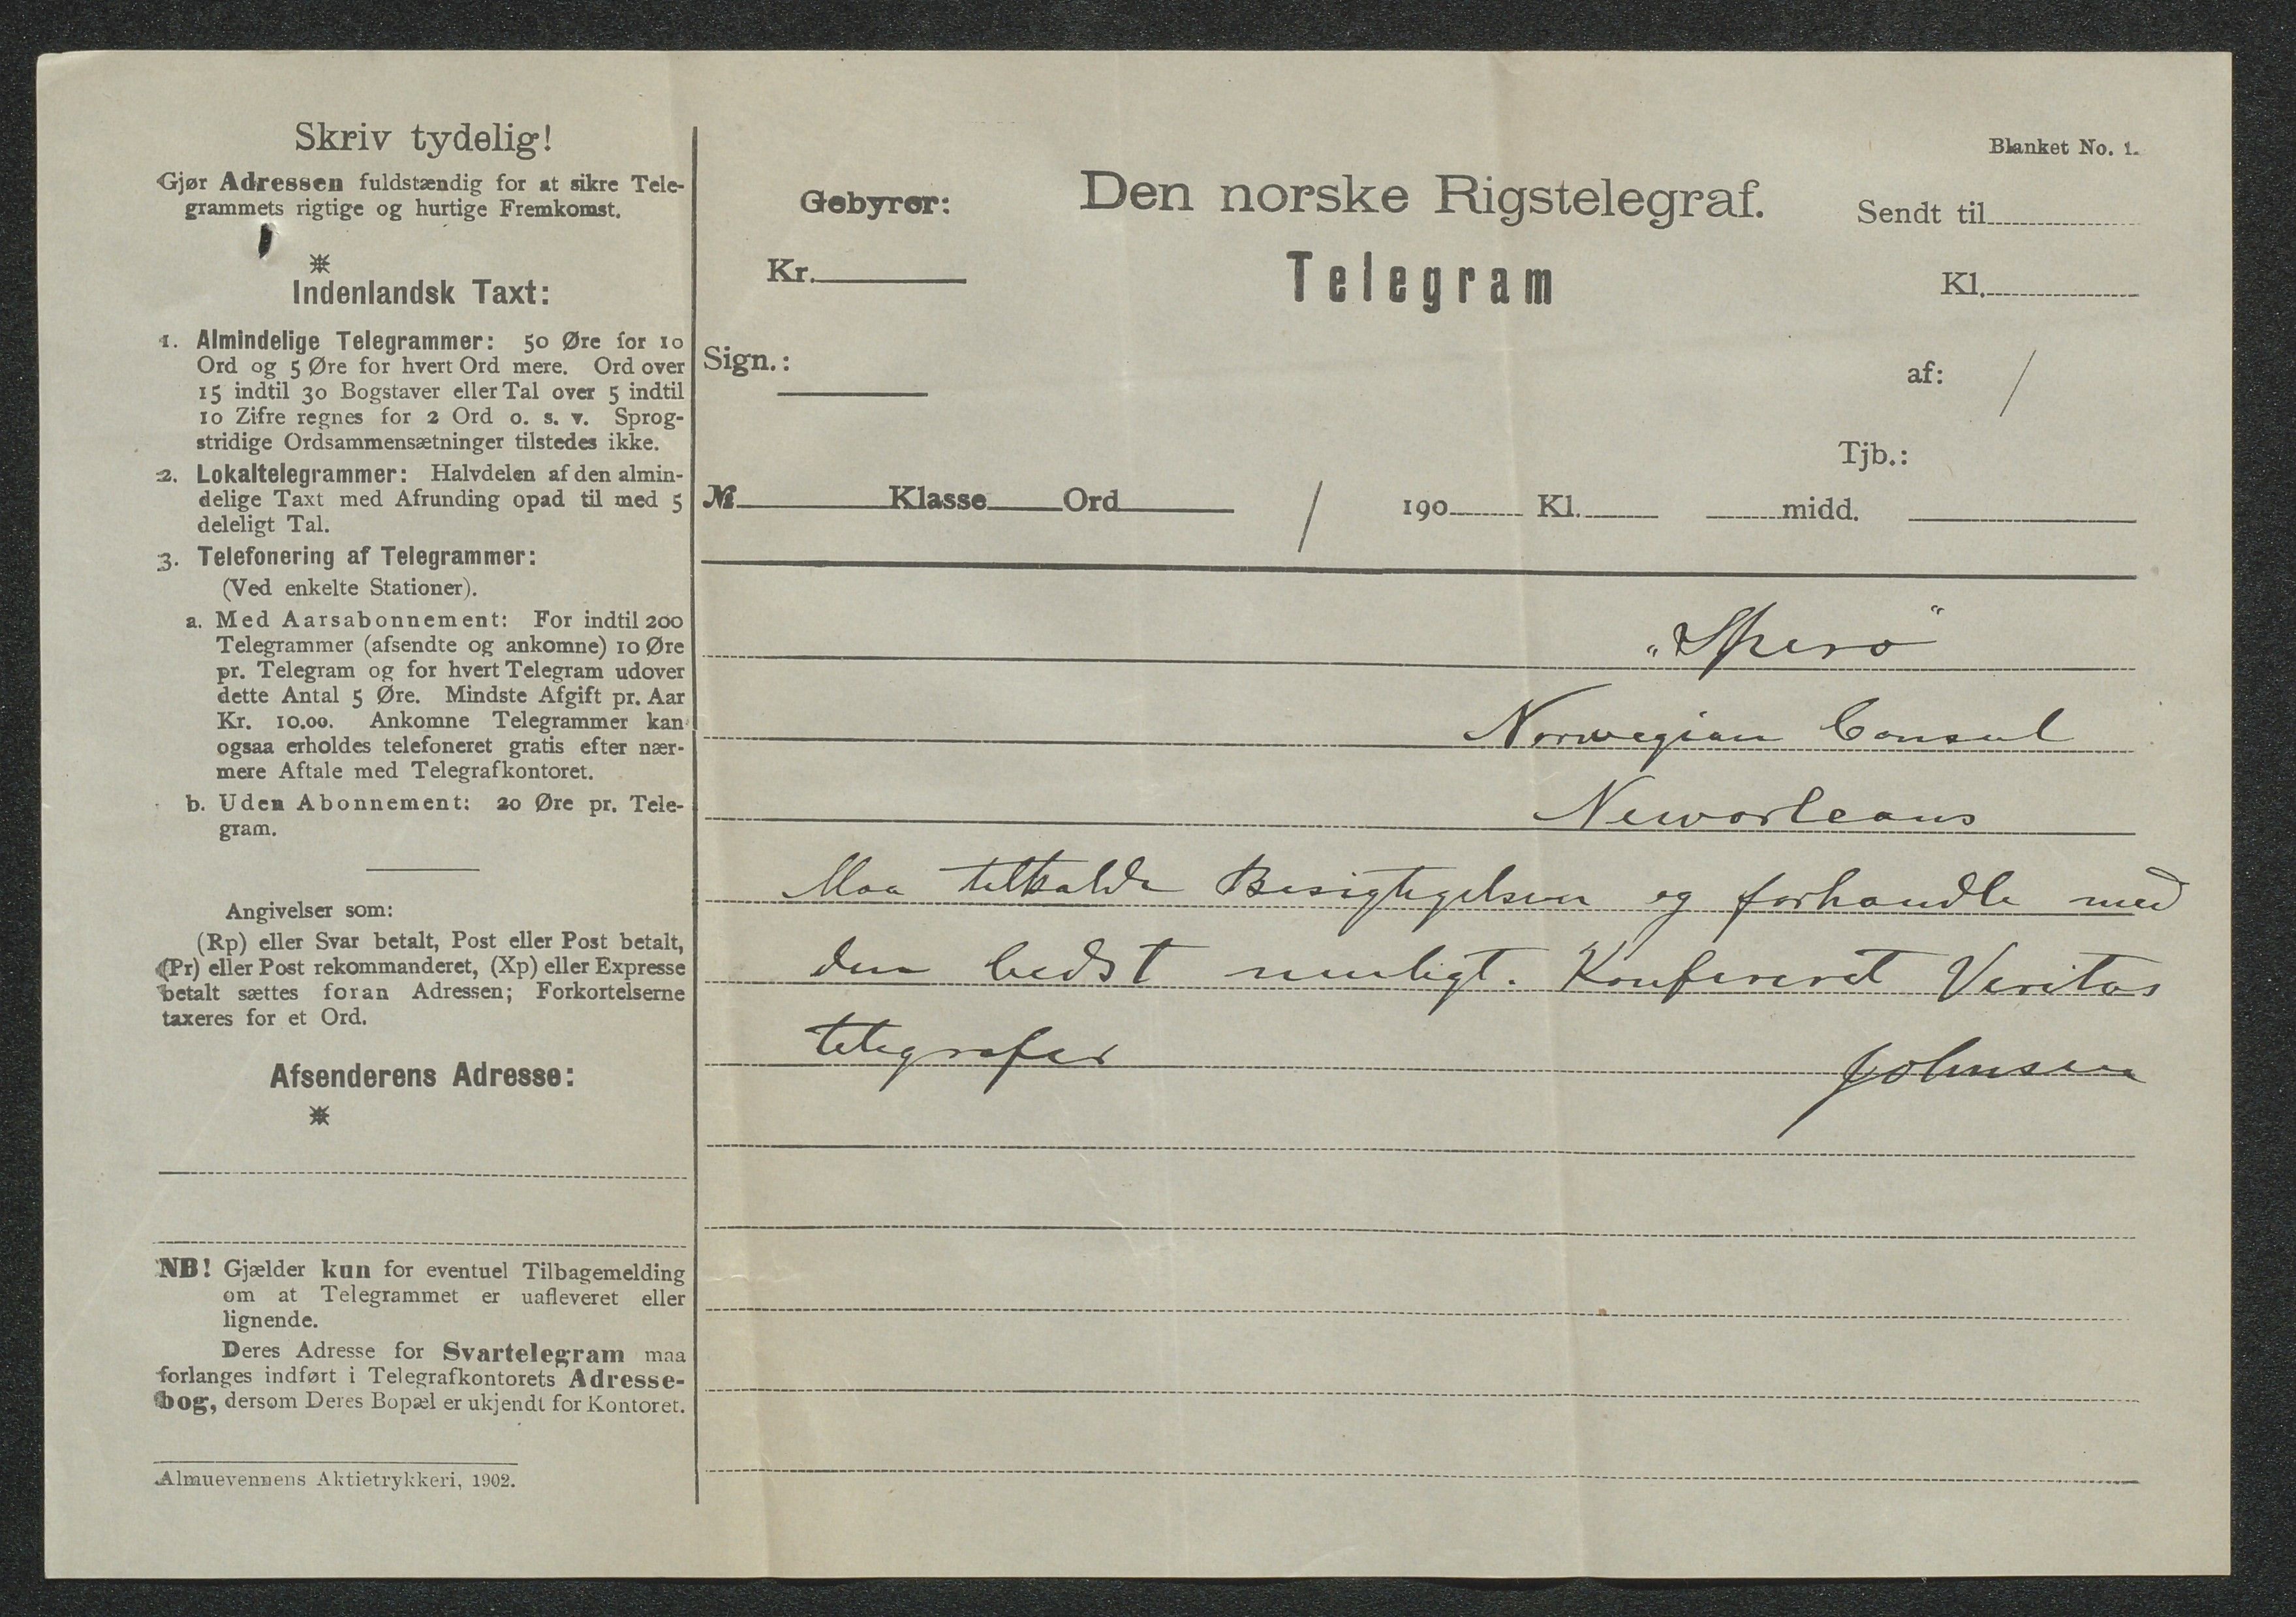 Skriv tydelig!
Gjør Adressen fuldstændig for at sikre Tele-
grammets rigtige og hurtige Fremkomst.
Indenlandsk Taxt:
1. Almindelige Telegrammer: 50 Øre for 10
Ord og 5 Øre for hvert Ord mere. Ord over
15 indtil 30 Bogstaver eller Tal over 5 indtil
10 Zifre regnes for 2 Ord o. s. v. Sprog-
stridige Ordsammensætninger tilstedes ikke.
2. Lokaltelegrammer: Halvdelen af den almin-
delige Taxt med Afrunding opad til med 5
deleligt Tal.
3. Telefonering af Telegrammer:
(Ved enkelte Stationer).
a. Med Aarsabonnement: For indtil 200
Telegrammer (afsendte og ankomne) 10 Øre
pr. Telegram og for hvert Telegram udover
dette Antal 5 Øre. Mindste Afgift pr. Aar
Kr. 10.00. Ankomne Telegrammer kan
ogsaa erholdes telefoneret gratis efter nær-
mere Aftale med Telegrafkontoret.
b. Uden Abonnement: 20 Øre pr. Tele-
gram.
Angivelser som:
(Rp) eller Svar betalt, Post eller Post betalt,
(Pr) eller Post rekommanderet, (Xp) eller Expresse
betalt sættes foran Adressen; Forkortelserne
taxeres for et Ord.
Afsenderens Adresse:
NB! Gjælder kun for eventuel Tilbagemelding
om at Telegrammet er uafleveret eller
lignende.
Deres Adresse for Svartelegram maa
forlanges indført i Telegrafkontorets Adresse-
bog, dersom Deres Bopæl er ukjendt for Kontoret.
Almuevennens Aktietrykkeri, 1902.
Blanket No. 1.
Gebyrer: Den norske Rigstelegraf. Sendt til
Kr. Telegram Kl.
Sign.: af: /
Tjb.:
№ Klasse Ord / 190 Kl. midd.
„Spero"
Norwegian Consul
Neworleans
Maa tilkalde Besigtigelsen og forhandle med
den bedst muligt. Konfereret Veritas
telegrafer Johnsen